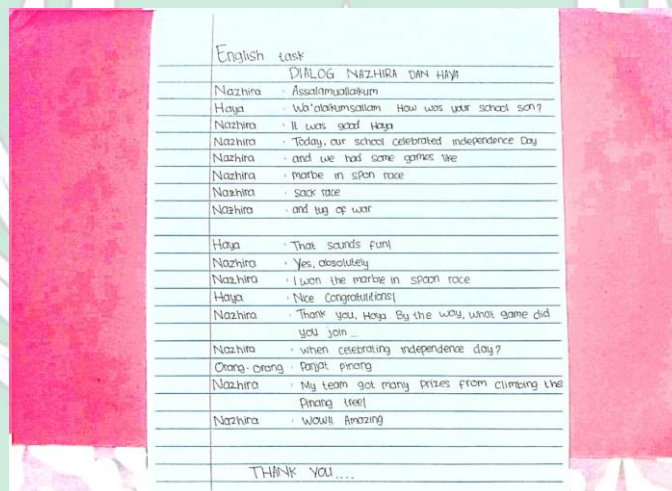 English task
DIALOG NAZHIRA DAN HAYA
Nazhira : Assalamuallaikum
Haya : Wa'alaikumsallam How was your school son?
Nazhira : It was good Haya
Nazhira : Today, our school celebrated independence Day
Nazhira : and we had some games like
Nazhira : marbe in spon race
Nazhira : sack race
Nazhira : and tug of war
Haya : That sounds fun!
Nazhira : Yes, absolutely
Nazhira : I won the marble in spoon race
Haya : Nice Congratulitions!
Nazhira : Thank you, Haya. By the way, what game did
you join...
Nazhira : when celebrating independence day?
Orang-orang : Panjat pinang
Nazhira : My team got many prizes from climbing the
Pinang tree!
Nazhira : WOW!! Amazing
THANK YOU....